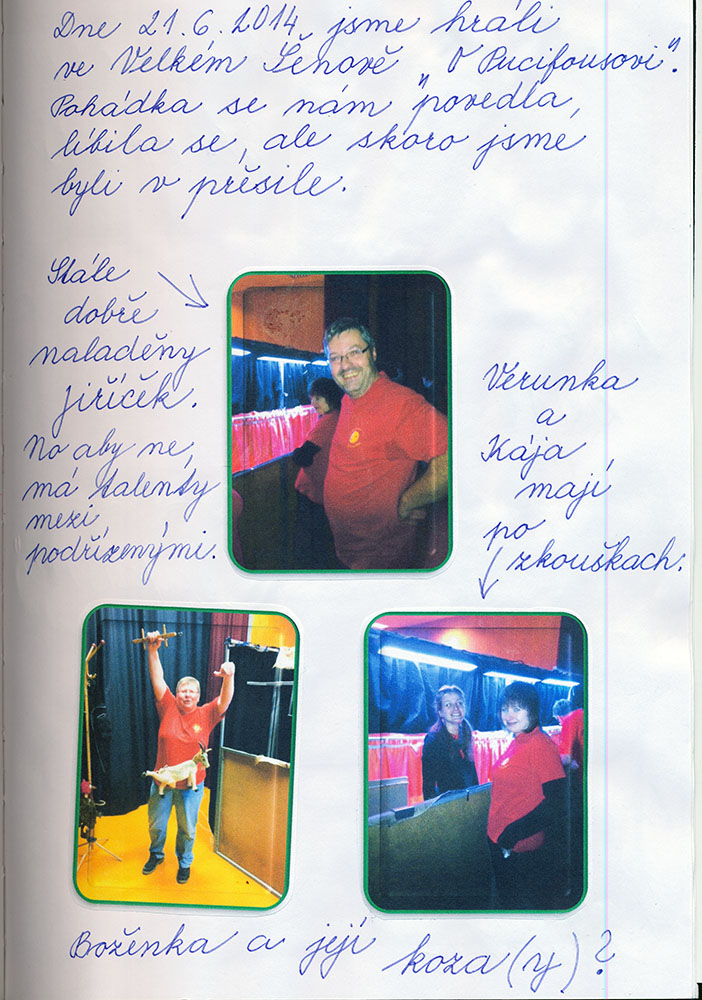 Dne 21.6.2014 jsme hráli
ve Velkém Šenově „O Pucifousovi“.
Pohádka se nám povedla,
líbila se, ale skoro jsme
byli v přesile.
Stále
dobře
naladěný
Jiříček.
No aby ne,
má talenty
mezi
podřízenými.
Verunka
a
Kája
mají
po
zkouškách.
Boženka a její koza(y)?